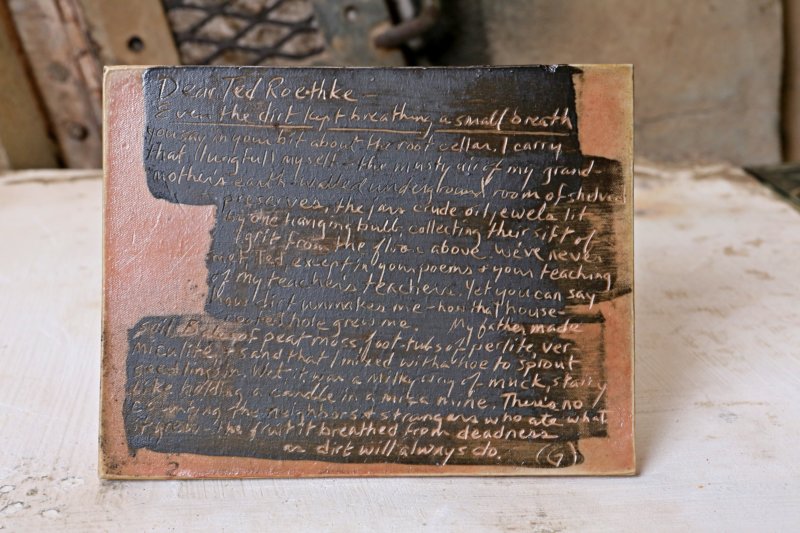 Dear Ted Roethke —
Even the dirt kept breathing a small breath
you say in your bit about the root cellar. I carry
that lungfull myself — the musty air of my grand-
mother's earth-walled underground room of shelved
preserves, the jars crude oil jewels lit
by one hanging bulb, collecting their sift of
grit from the floor above. We've never
met Ted except in your poems & your teaching
of my teacher's teachers. Yet you can say
how dirt unmakes me — how that house-
hole grew me. My father made
soil. Bales of peat moss, foot-tubs of perlite, ver
miculite, & sand that I mixed with a hoe to sprout
seedlings in. Wet it was a milky way of muck, starry
like holding a candle in a mica mine. There's no
the neighbors & strangers who ate what
it grew — the fruit it breathed from deadness
as dirt will always do. (G)